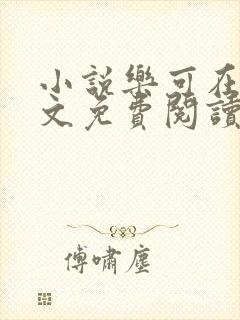 小說樂可在
文免費閱讀
傅嘯塵